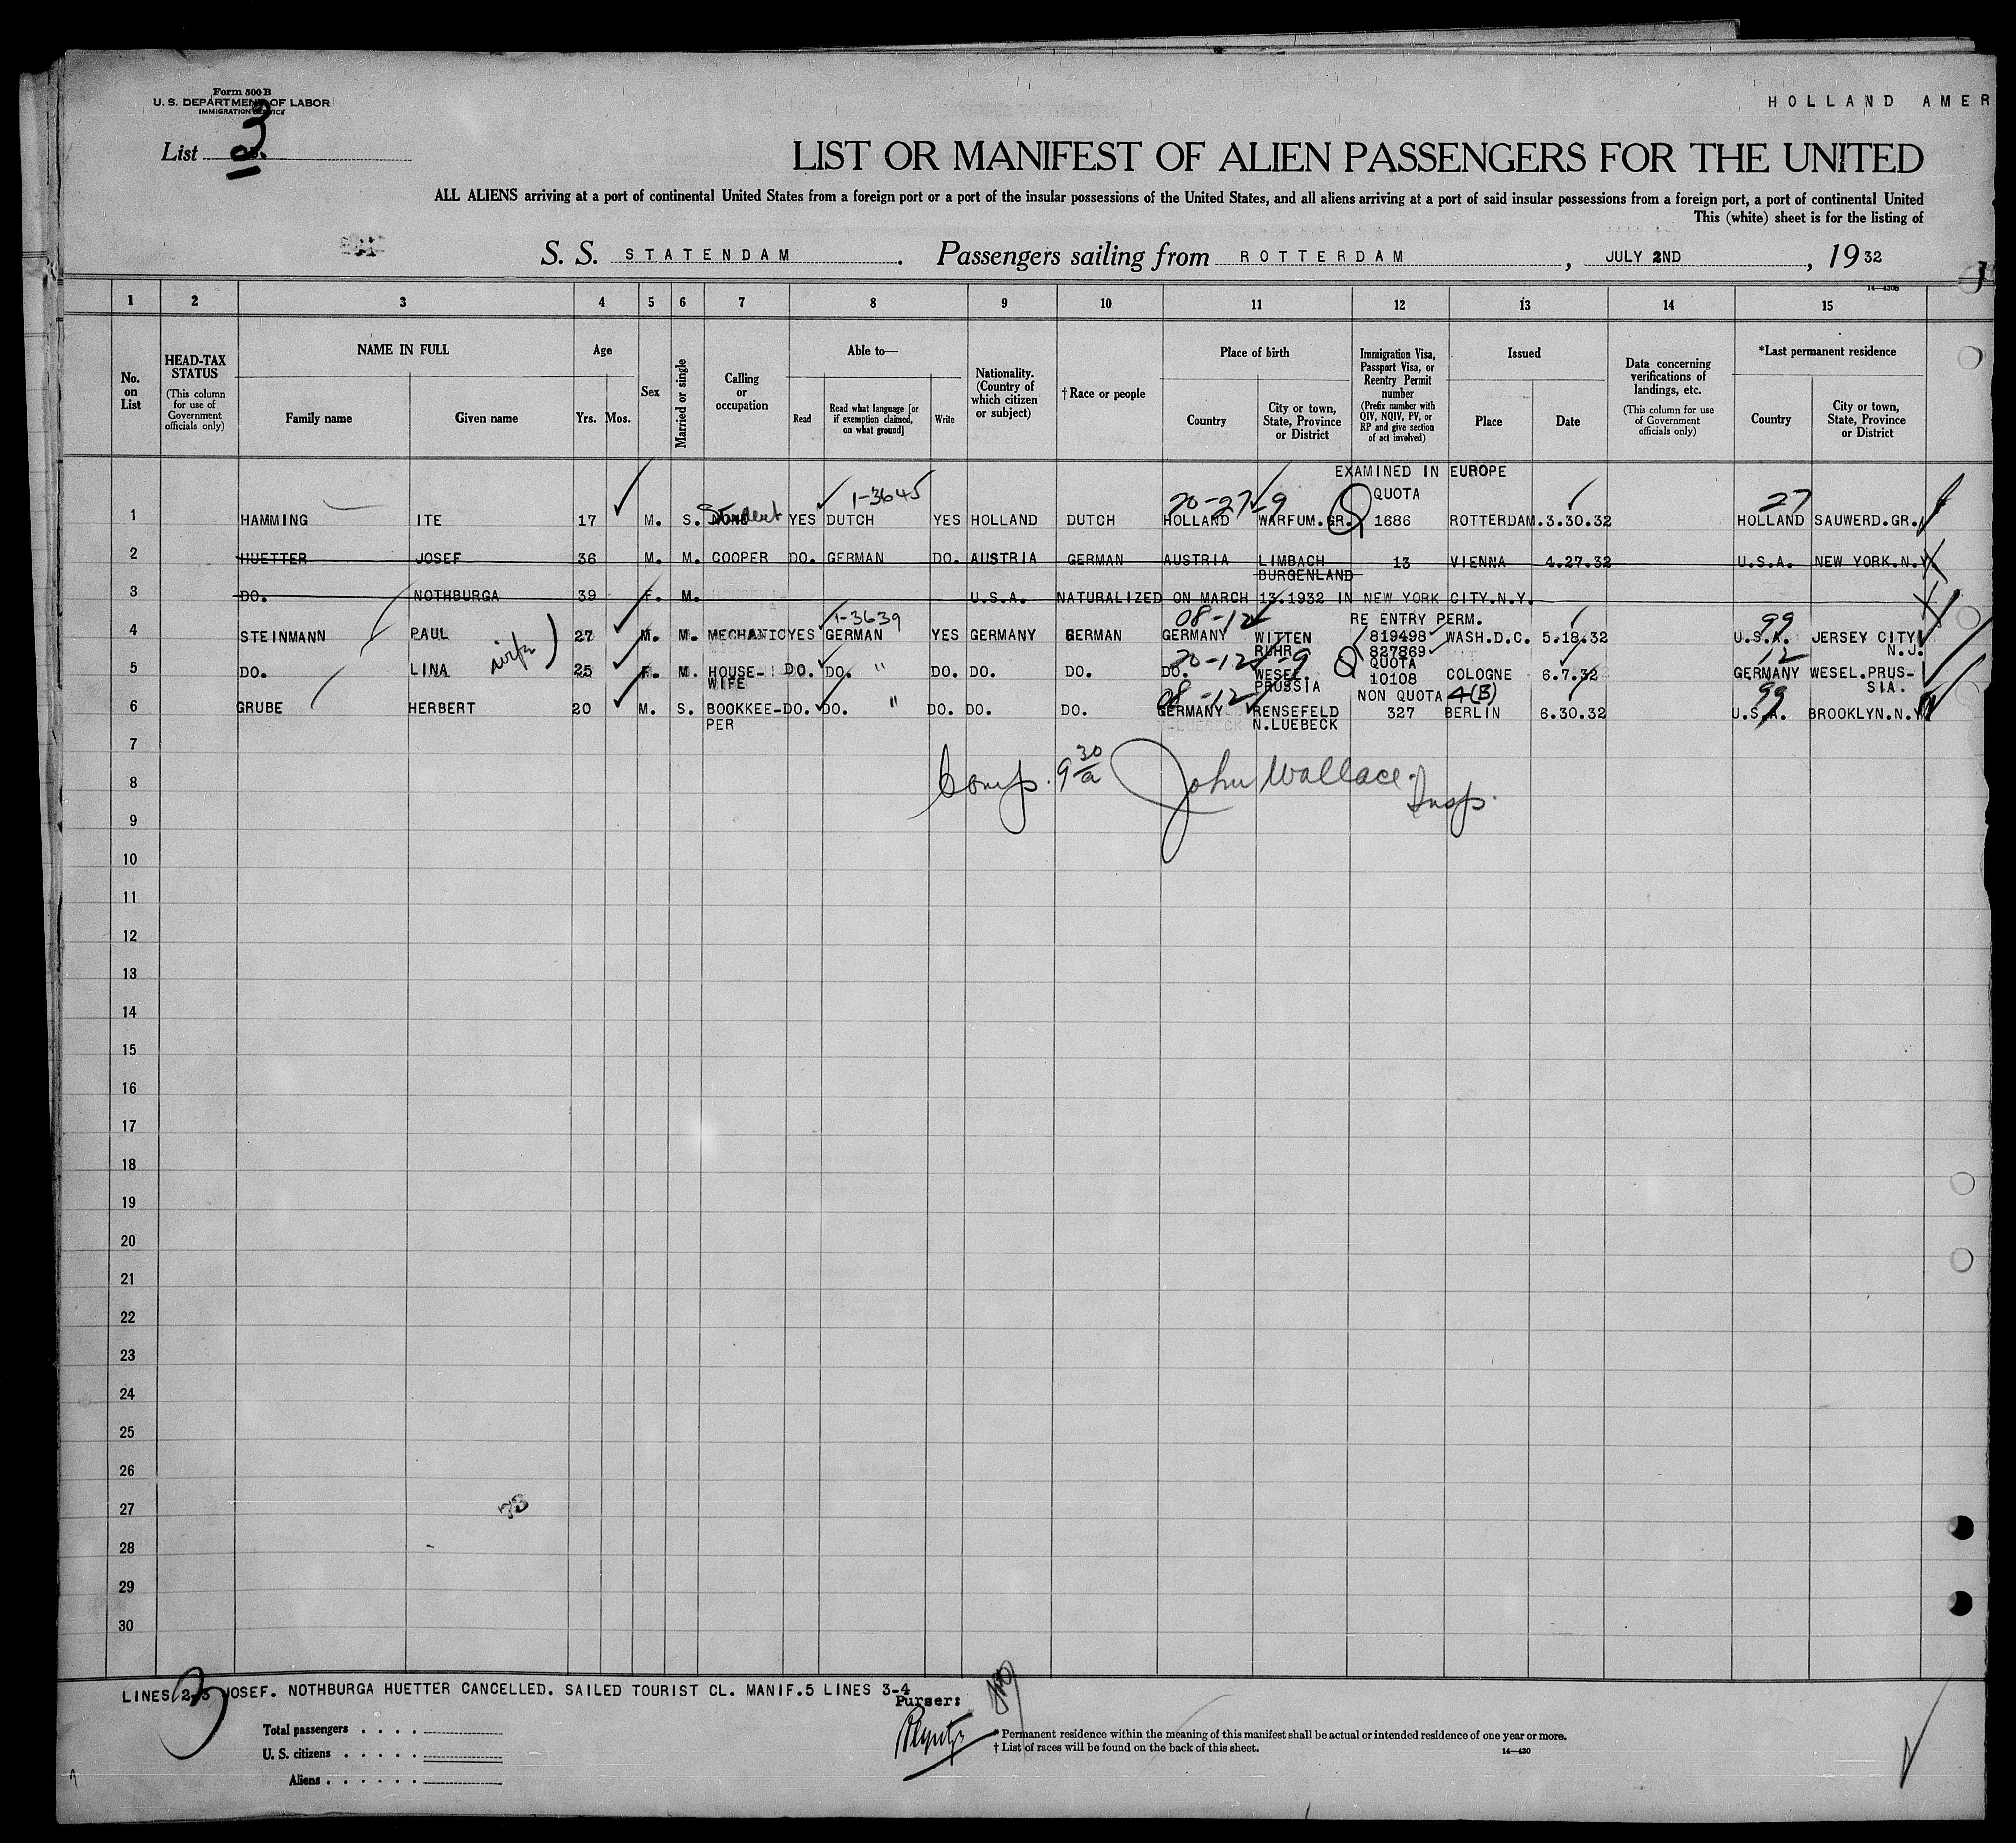 Form 500 B
U. S. DEPARTMENT OF LABOR
IMMIGRATION SERVICE
HOLLAND AMER
List 3
LIST OR MANIFEST OF ALIEN PASSENGERS FOR THE UNITED
ALL ALIENS arriving at a port of continental United States from a foreign port or a port of the insular possessions of the United States, and all aliens arriving at a port of said insular possessions from a foreign port, a port of continental United
This (white) sheet is for the listing of
S. S. STATENDAM. Passengers sailing from ROTTERDAM, JULY 2ND, 1932
14—430B
1 2 3 4 5 6 7 8 9 10 11 12 13 14 15
No. on List
HEAD-TAX STATUS
(This column for use of Government officials only)
NAME IN FULL
Family name Given name
Age
Yrs. Mos.
Sex
Married or single
Calling or occupation
Able to—
Read
Read what language [or if exemption claimed, on what ground]
Write
Nationality. (Country of which citizen or subject)
†Race or people
Place of birth
Country
City or town, State, Province or District
Immigration Visa, Passport Visa, or Reentry Permit number
(Prefix number with QIV, NQIV, PV, or RP and give section of act involved)
Issued
Place Date
Data concerning verifications of landings, etc.
(This column for use of Government officials only)
*Last permanent residence
Country
City or town, State, Province or District
EXAMINED IN EUROPE
1-3645 20-27-9 QUOTA 27
1 HAMMING ITE 17 M. S. NONE Student YES DUTCH YES HOLLAND DUTCH HOLLAND WARFUM.GR. 1686 ROTTERDAM.3.30.32 HOLLAND SAUWERD.GR.
2 HUETTER JOSEF 36 M. M. COOPER DO. GERMAN DO. AUSTRIA GERMAN AUSTRIA LIMBACH 13 VIENNA 4.27.32 U.S.A. NEW YORK.N.Y.
BURGENLAND
3 DO. NOTHBURGA 39 F. M. U.S.A. NATURALIZED ON MARCH 13.1932 IN NEW YORK CITY.N.Y.
1-3639 08-12 RE ENTRY PERM. 99
4 STEINMANN PAUL 27 M. M. MECHANIC YES GERMAN YES GERMANY GERMAN GERMANY WITTEN 819498 WASH.D.C. 5.18.32 U.S.A. JERSEY CITY
RUHR 827869 N.J.
wife 20-12-9 QUOTA 12
5 DO. LINA 25 F. M. HOUSE- DO. DO. " DO. DO. DO. DO. WESEL. 10108 COLOGNE 6.7.32 GERMANY WESEL.PRUS-
WIFE PRUSSIA SIA.
08-12 NON QUOTA 4(B) 99
6 GRUBE HERBERT 20 M. S. BOOKKEE- DO. DO. " DO. DO. DO. GERMANY RENSEFELD 327 BERLIN 6.30.32 U.S.A. BROOKLYN.N.Y.
PER N.LUEBECK
7
Comp. 9 30/a John Wallace. Insp.
8
9
10
11
12
13
14
15
16
17
18
19
20
21
22
23
24
25
26
27
28
29
30
LINES 2-3 JOSEF. NOTHBURGA HUETTER CANCELLED. SAILED TOURIST CL. MANIF.5 LINES 3-4
Purser:
Total passengers . . . .
U. S. citizens . . . . .
Aliens . . . . . .
* Permanent residence within the meaning of this manifest shall be actual or intended residence of one year or more.
† List of races will be found on the back of this sheet.
14—430